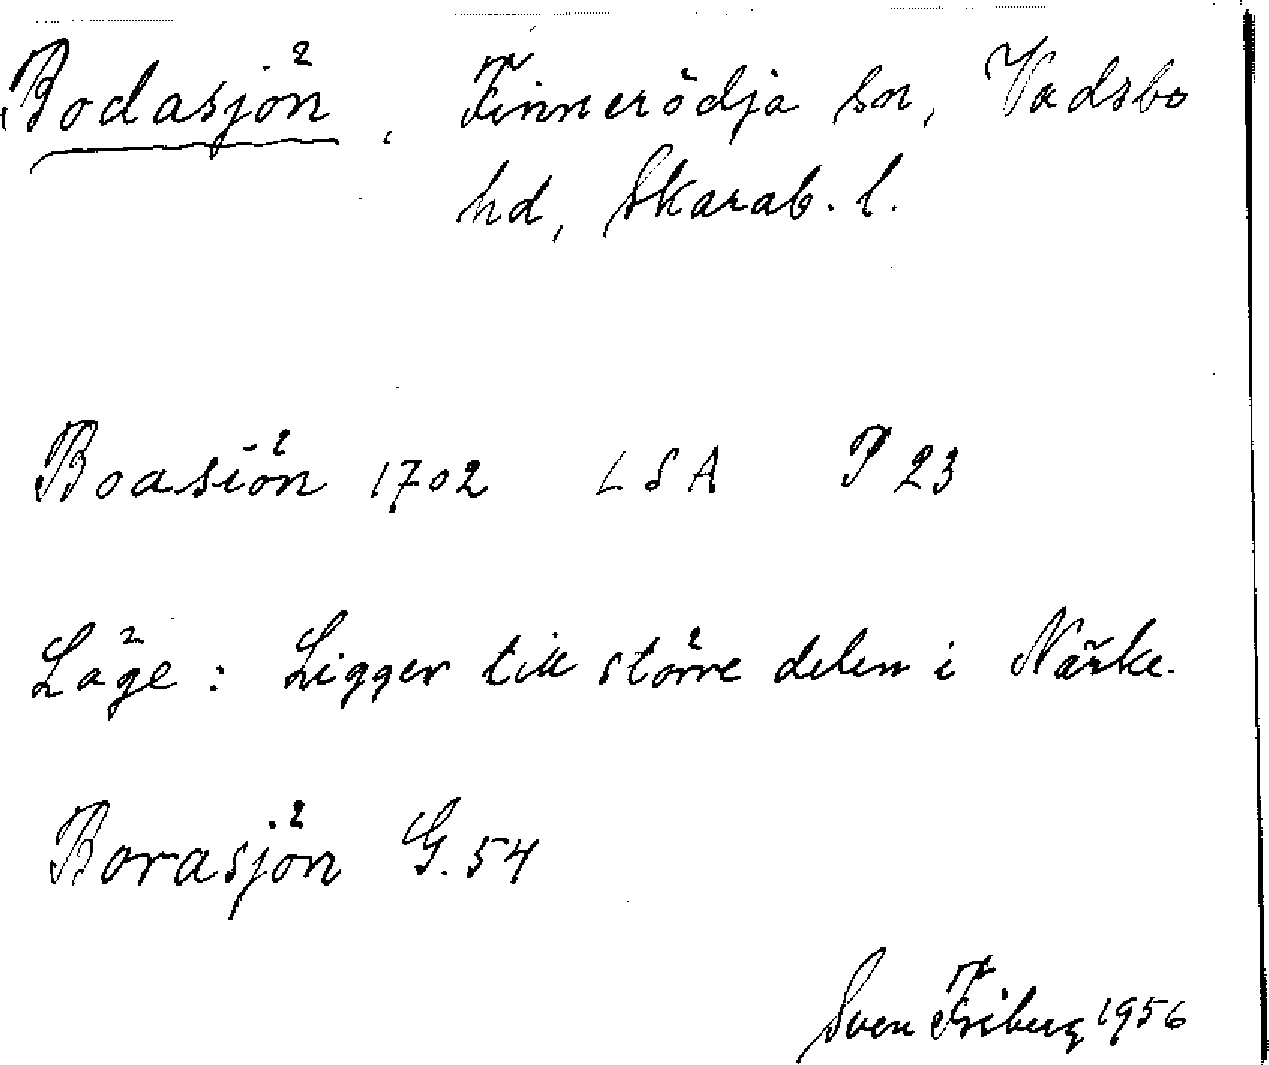 Bodasjön, Finnerödja sn, Vadsbo
hd, Skarab. l.
Boasiön 1702 LSA P 23
Läge: Ligger till större delen i Närke.
Borasjön G. 54
Sven Friberg 1956